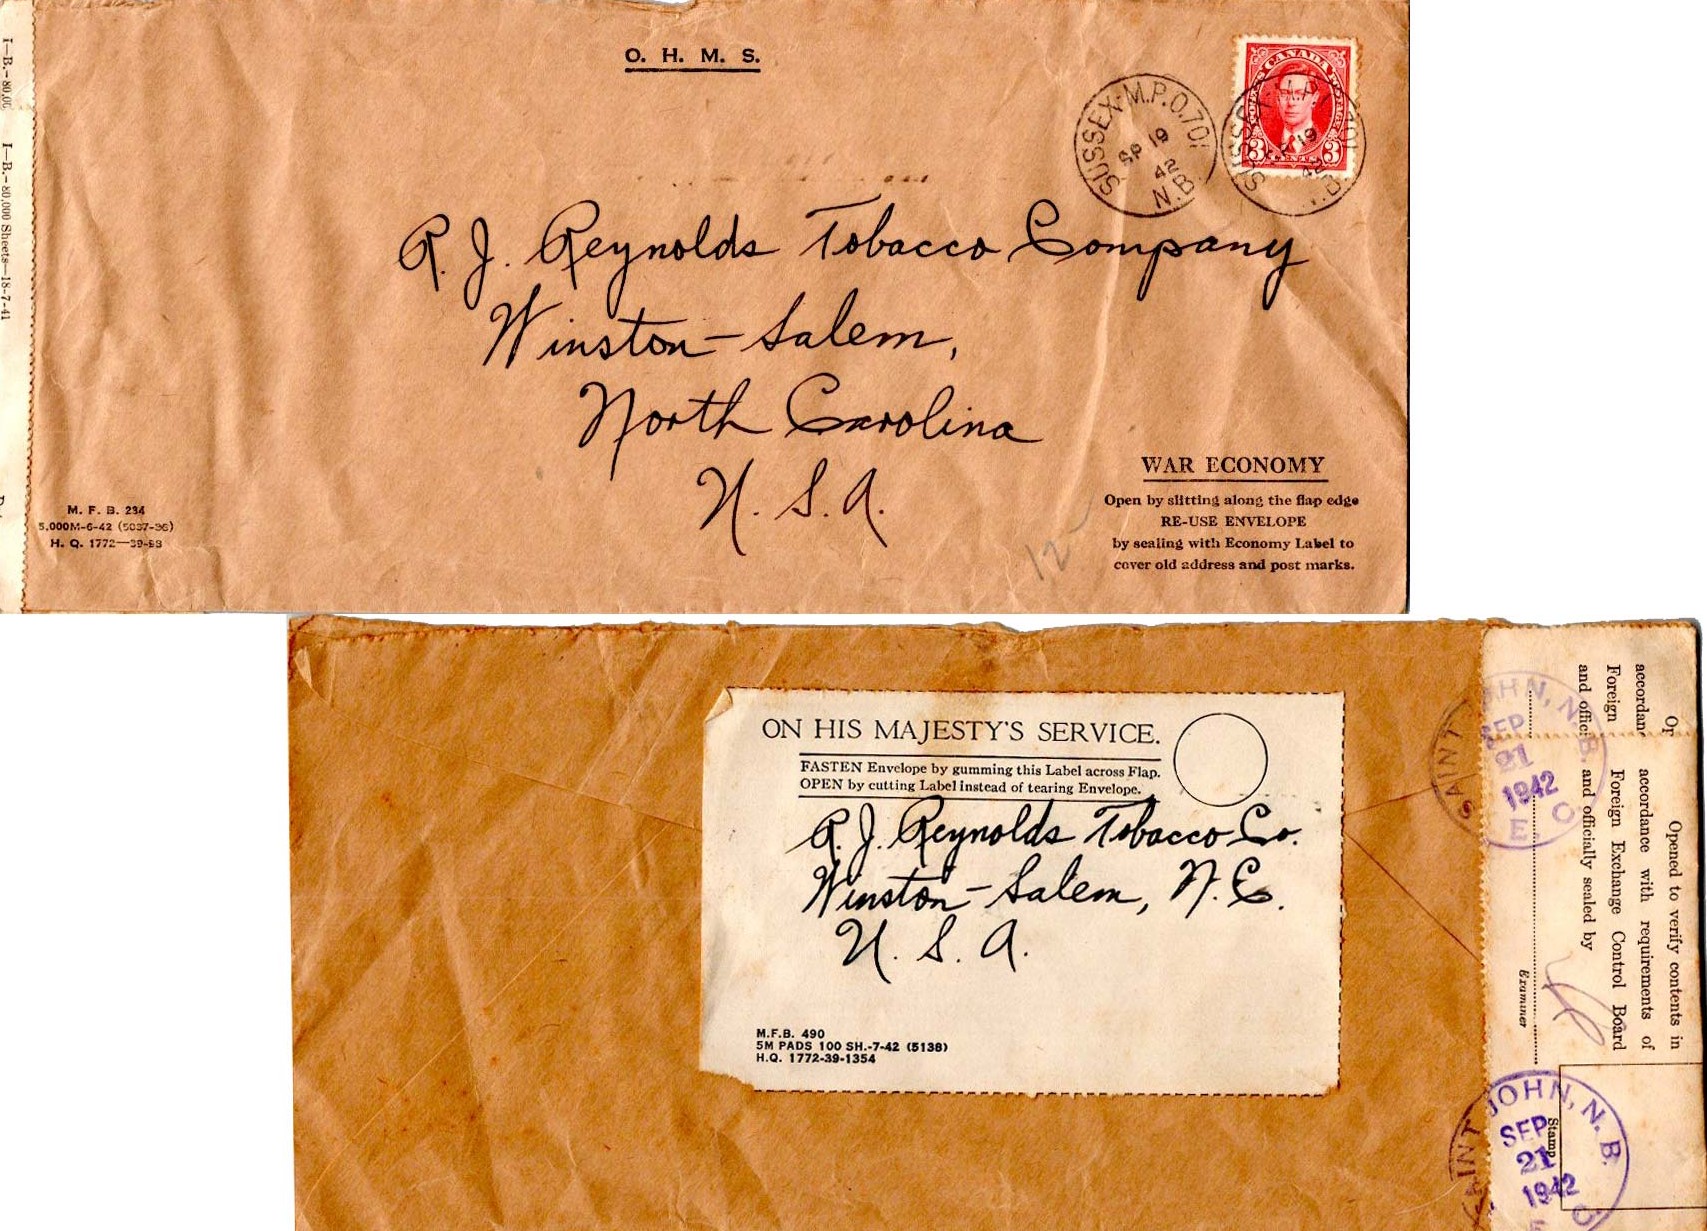 O. H. M. S.
CANADA
POSTES POSTAGE
3 CENTS 3
SUSSEX-M.P.O.701
SP 19
42
N.B.
SUSSEX-M.P.O.701
19
42
R. J. Reynolds Tobacco Company
Winston-Salem,
North Carolina
U. S. A.
12
WAR ECONOMY
Open by slitting along the flap edge
RE-USE ENVELOPE
by sealing with Economy Label to
cover old address and post marks.
M. F. B. 234
5.000M-6-42 (5037-36)
H. Q. 1772—39-93
I—B.-80,00
I—B.—80,000 Sheets—18-7-41
ON HIS MAJESTY'S SERVICE.
FASTEN Envelope by gumming this Label across Flap.
OPEN by cutting Label instead of tearing Envelope.
R. J. Reynolds Tobacco Co.
Winston-Salem, N. C.
U. S. A.
M.F.B. 490
5M PADS 100 SH.-7-42 (5138)
H.Q. 1772-39-1354
Op
accordan
Foreign
and offic
Opened to verify contents in
accordance with requirements of
Foreign Exchange Control Board
and officially sealed by
Examiner
Stamp
SAINT JOHN, N. B.
SEP
21
1942
E. O.
SAINT JOHN, N. B.
SEP
21
1942